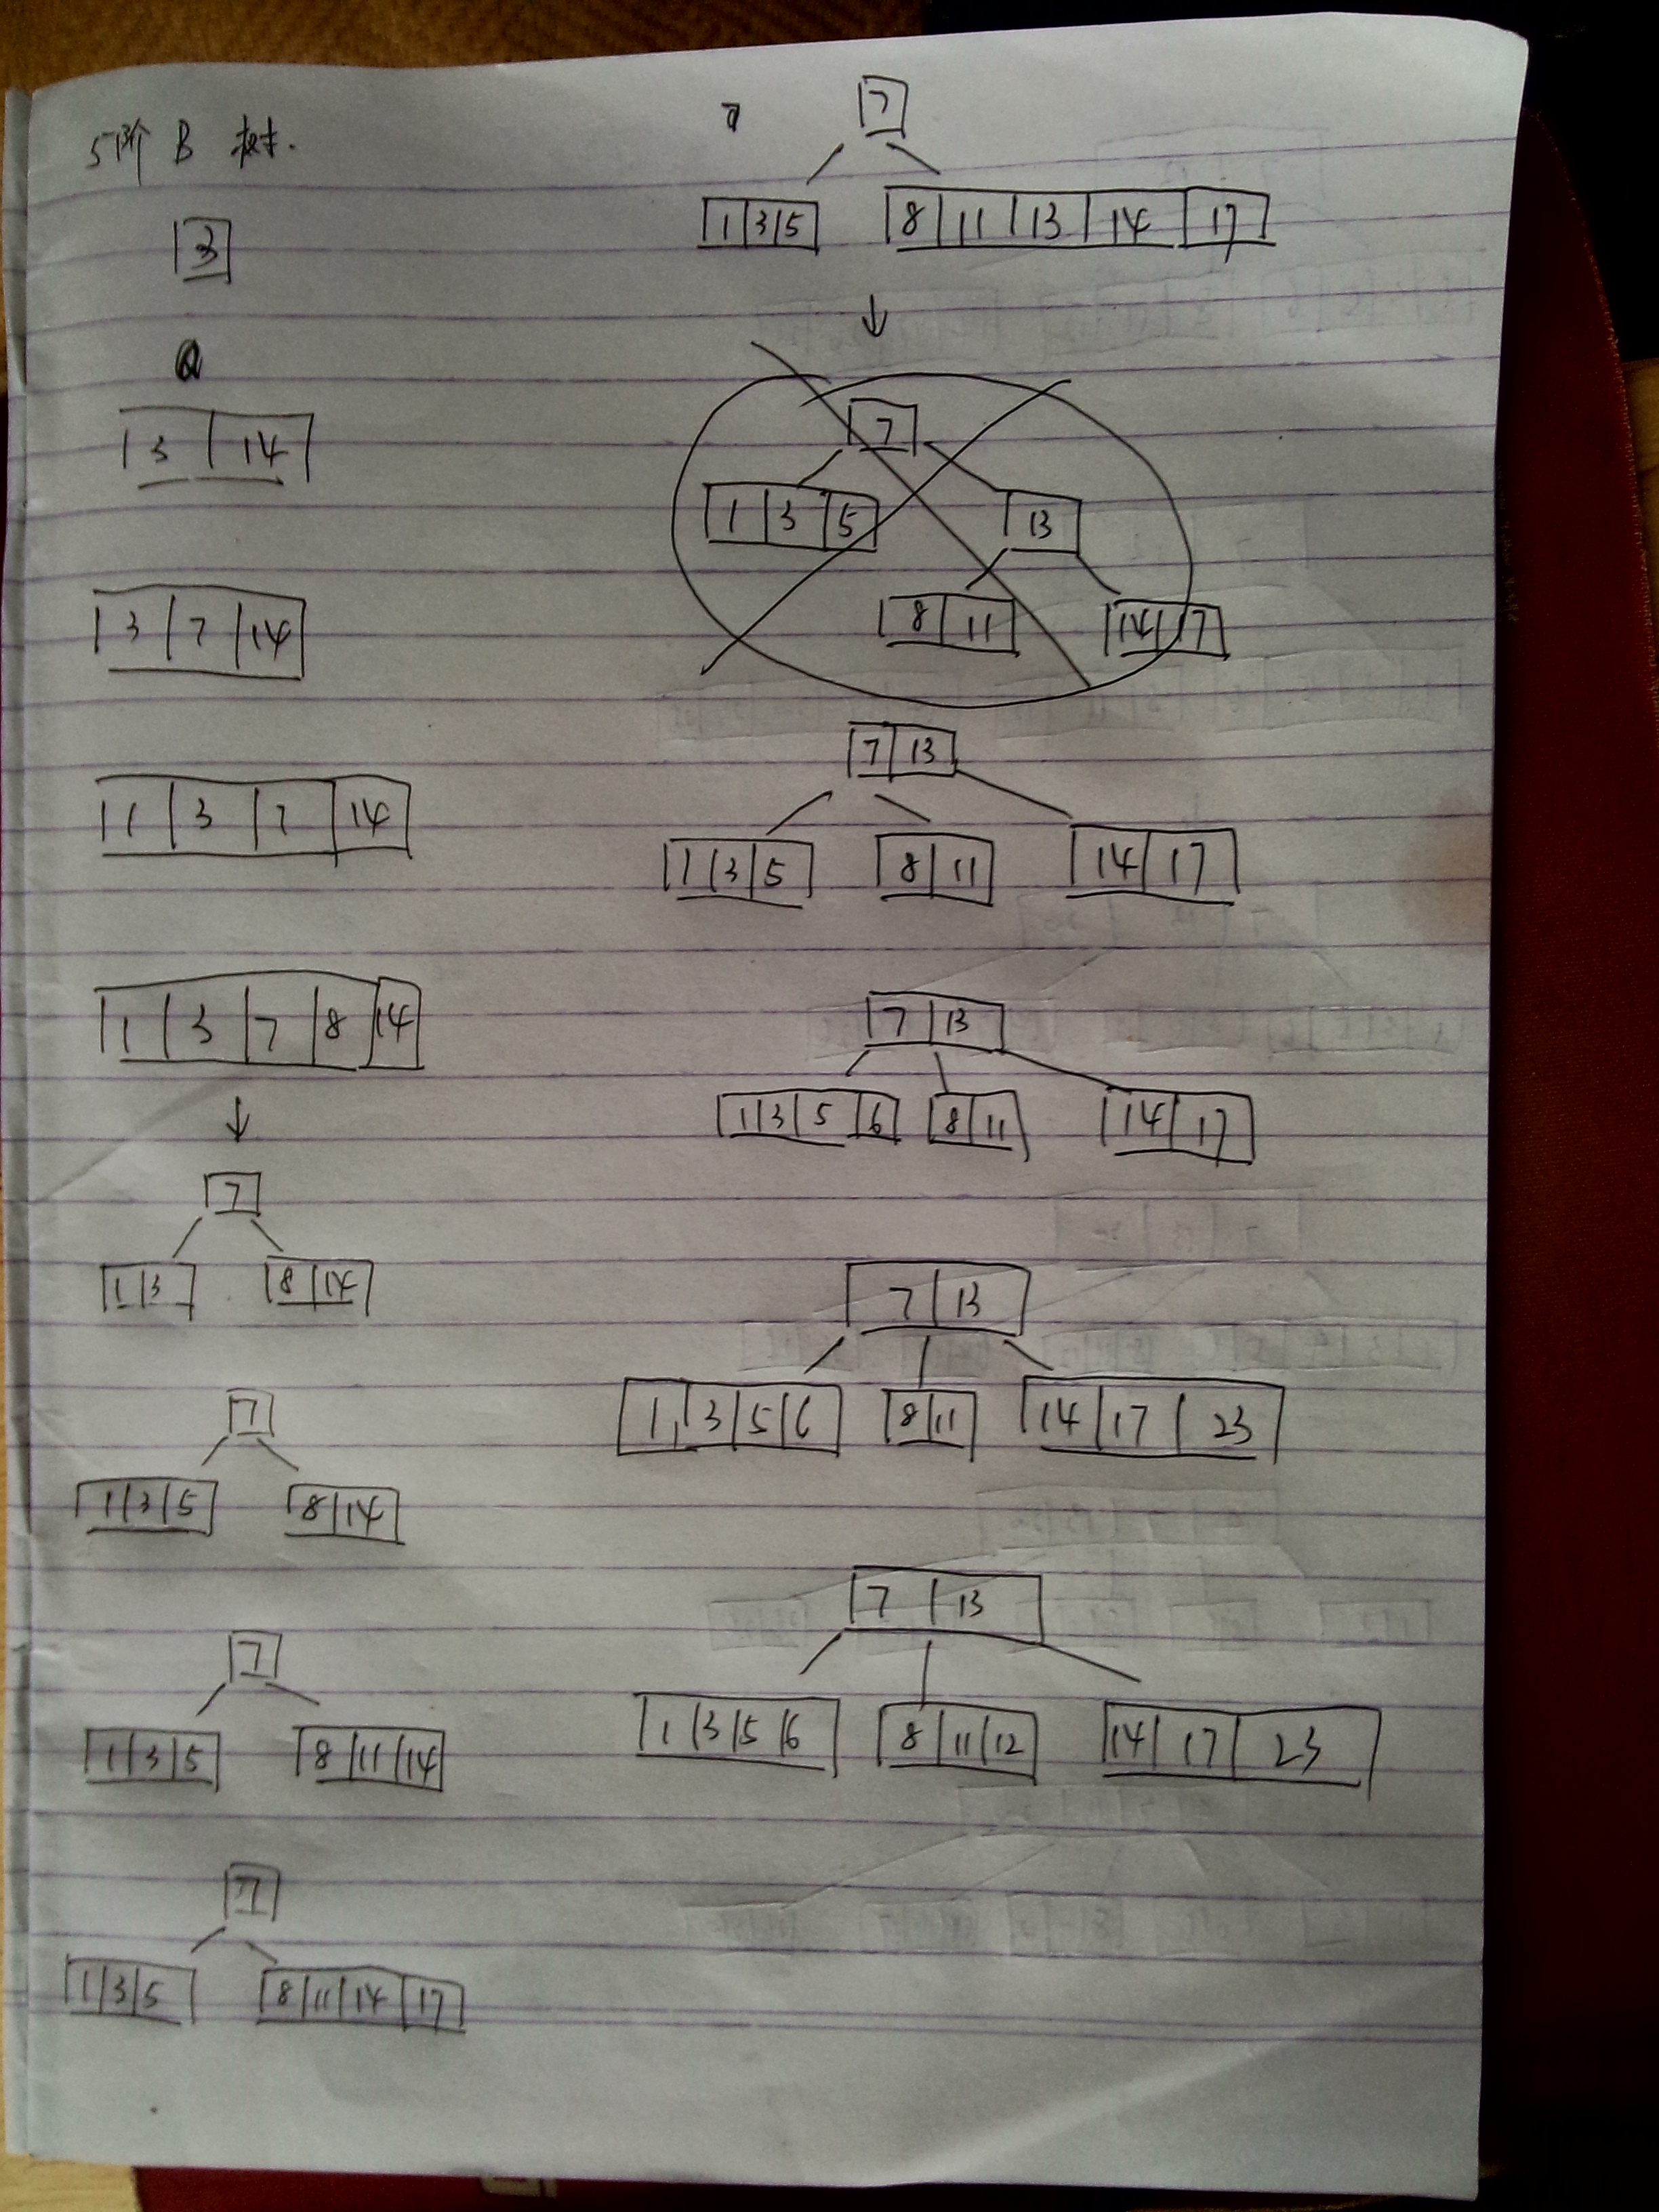 5阶 B 树.
3
3 14
3 7 14
1 3 7 14
1 3 7 8 14
↓
7
1 3 8 14
7
1 3 5 8 14
7
1 3 5 8 11 14
7
1 3 5 8 11 14 17
7
1 3 5 8 11 13 14 17
↓
7
1 3 5 13
8 11 14 17
7 13
1 3 5 8 11 14 17
7 13
1 3 5 6 8 11 14 17
7 13
1 3 5 6 8 11 14 17 23
7 13
1 3 5 6 8 11 12 14 17 23